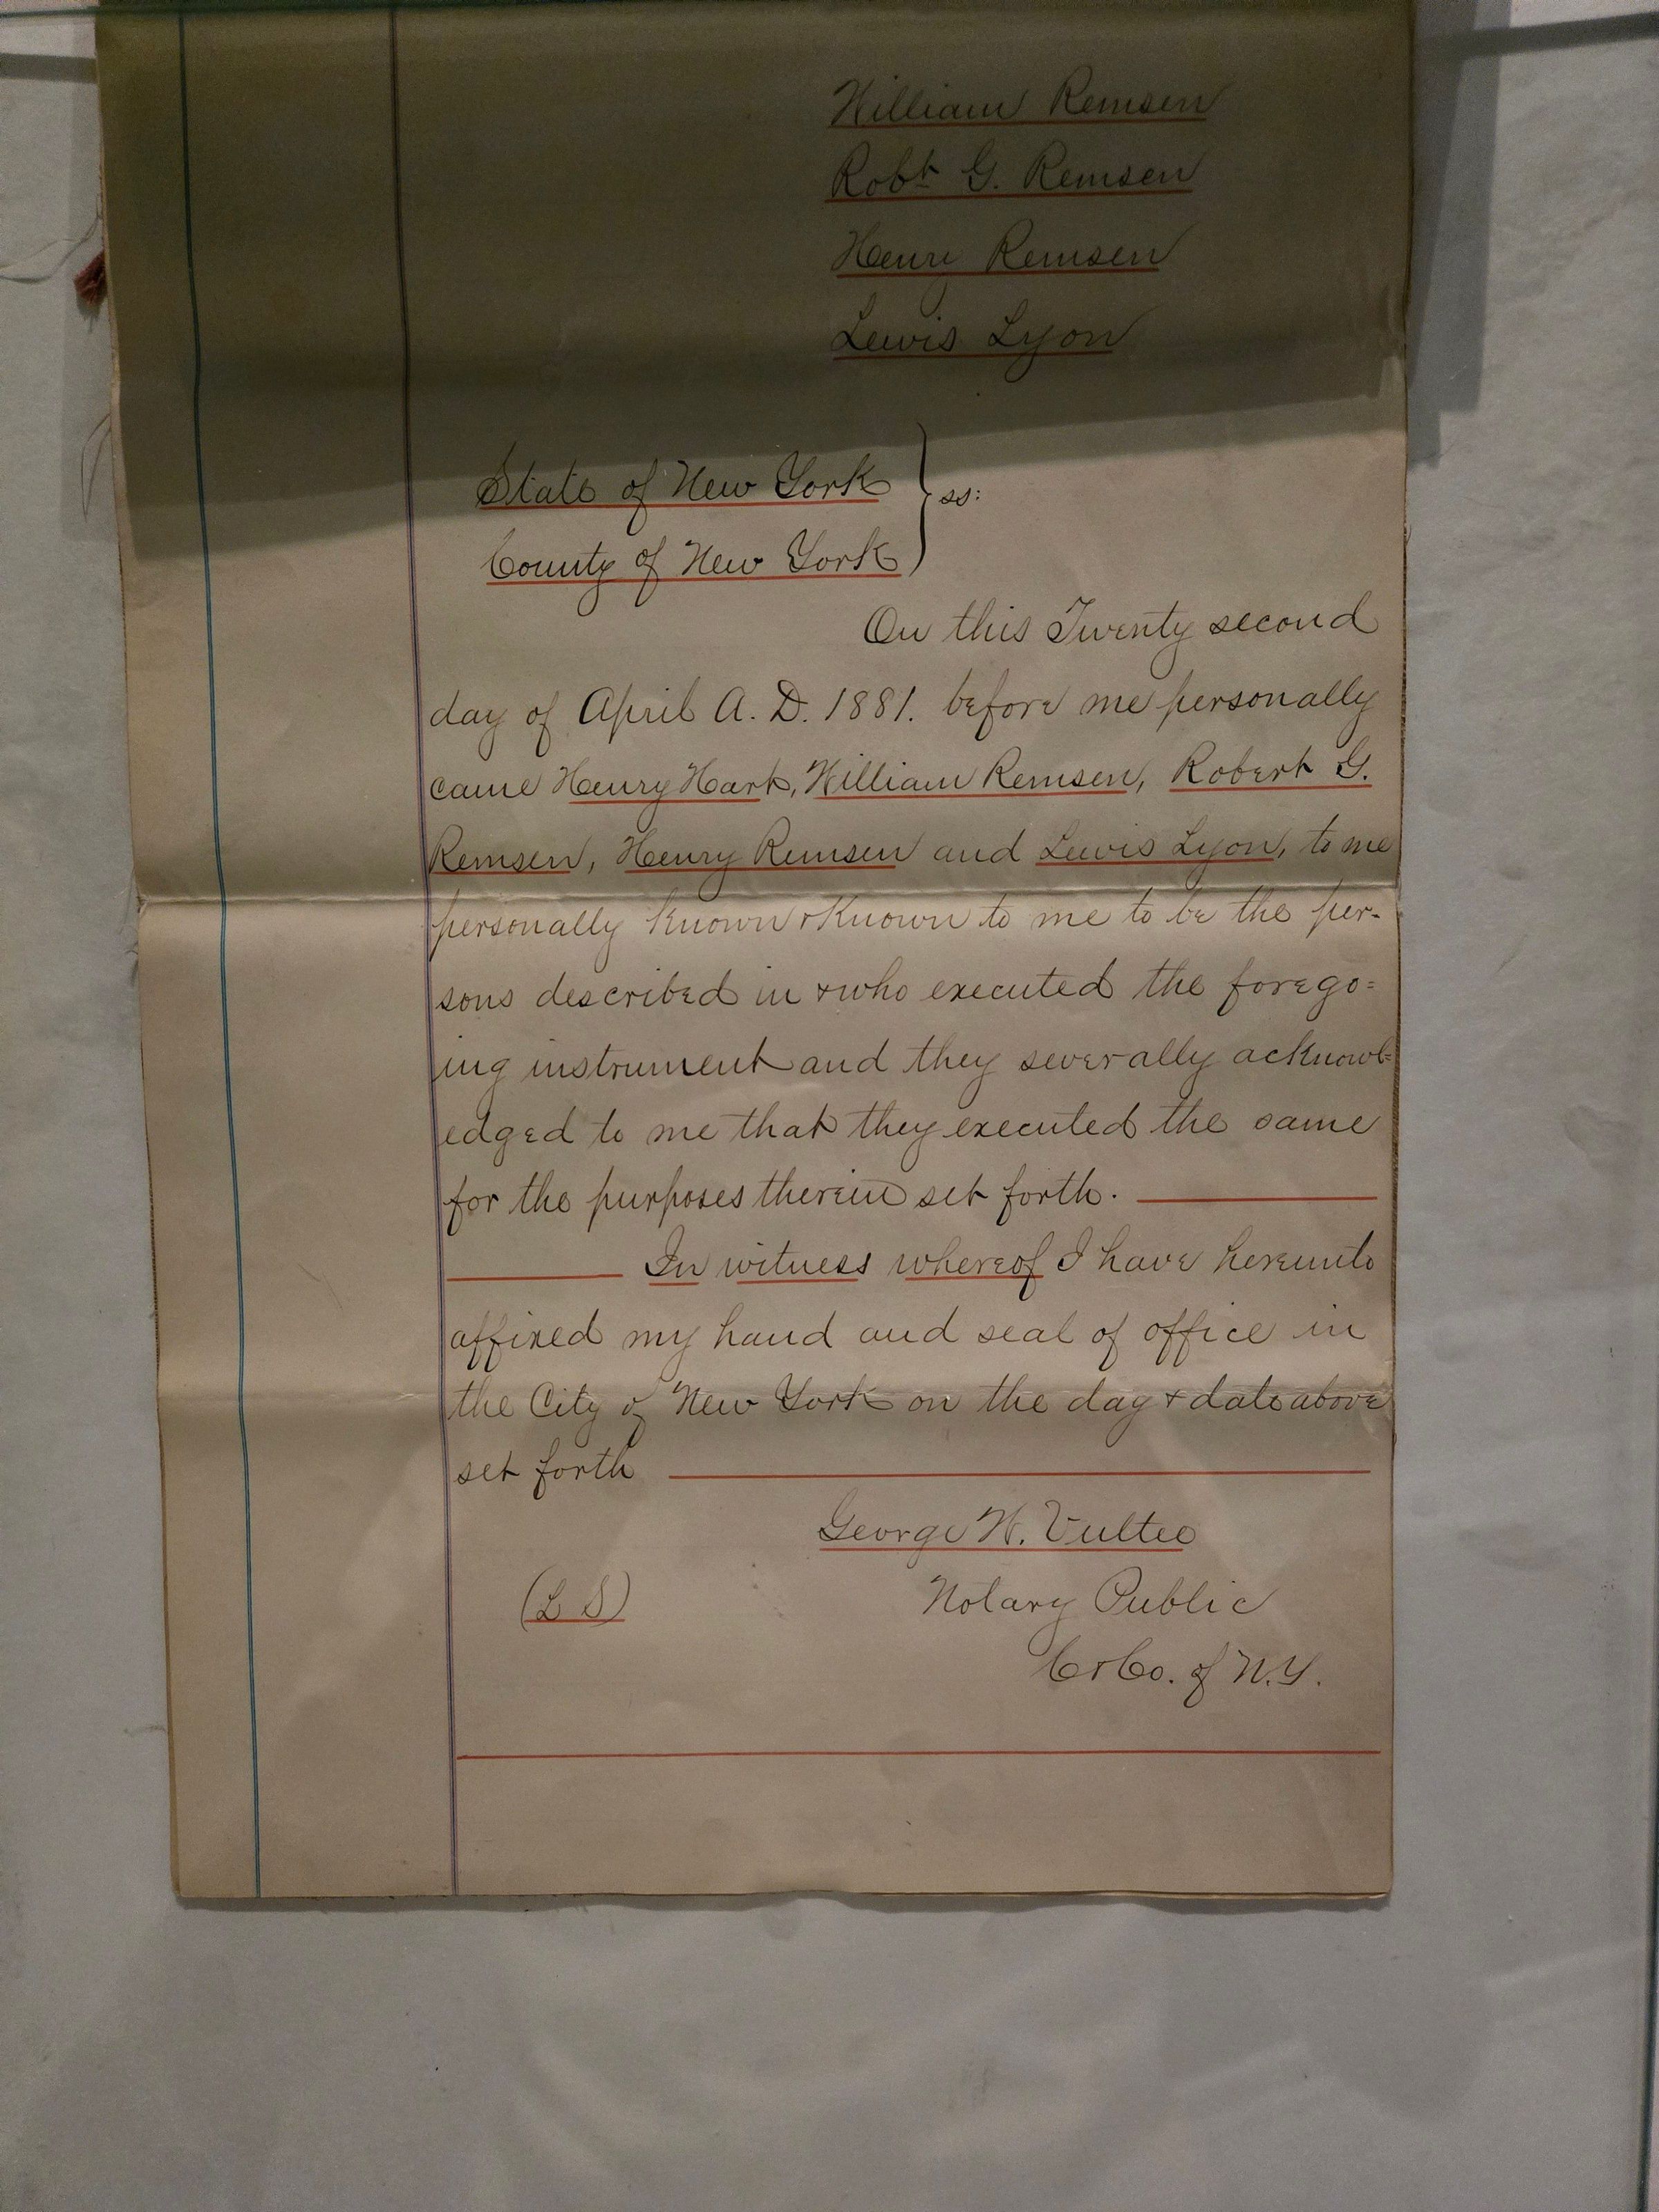 William Remsen
Robt G. Remsen
Henry Remsen
Lewis Lyon
State of New York } ss:
County of New York
On this Twenty second
day of April A. D. 1881. before me personally
came Henry Hart, William Remsen, Robert G.
Remsen, Henry Remsen and Lewis Lyon, to me
personally known & known to me to be the per-
sons described in & who executed the forego=
ing instrument and they severally acknowl=
edged to me that they executed the same
for the purposes therein set forth.
In witness whereof I have hereunto
affixed my hand and seal of office in
the City of New York on the day & date above
set forth
George W. Vultee
(L S) Notary Public
C & Co. of N.Y.